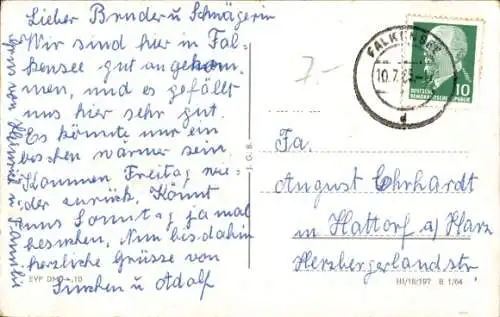 Lieber Bruder u Schwägerin
Wir sind hier in Fal-
kensee gut angekom-
men, und es gefällt
uns hier sehr gut.
Es könnte nur ein
beschen wärmer sein
Kommen Freitag wie-
der zurück. Könnt
uns Sonntag ja mal
besuchen. Nun bis dahin
herzliche Grüsse von
u Adolf
Gruss von u Familie
EVP DM 0,10
J.G.B.
7.-
FALKENSEE
10.7.65
d
DEUTSCHE
DEMOKRATISCHE REPUBLIK
10
Fa.
August Ehrhardt
in Hattorf a/Harz
Herzbergerlandstr
III/18/197 B 1/64